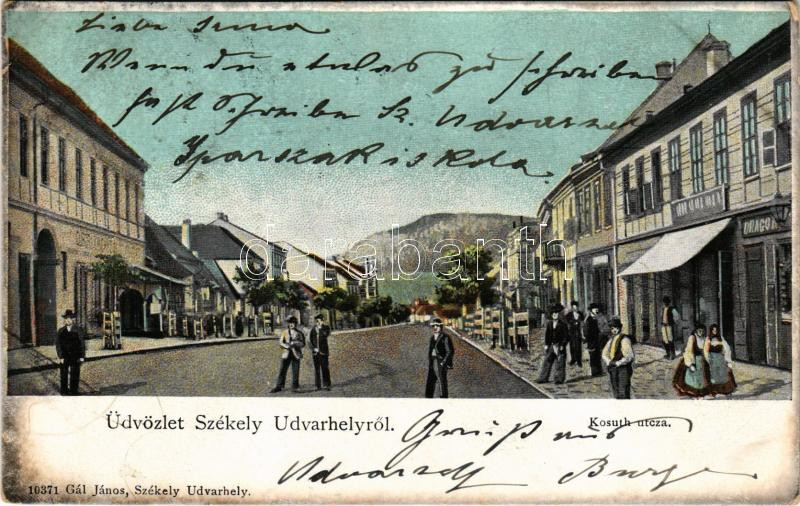 Liebe Irma
Wenn du etwas zu schreiben
hast schreibe Sz. Udvarhely
Iparszakiskola.
DRAGO
darabanth
Üdvözlet Székely Udvarhelyről.
Kosuth utcza.
Gruß aus
Udvarhely
10371 Gál János, Székely Udvarhely.